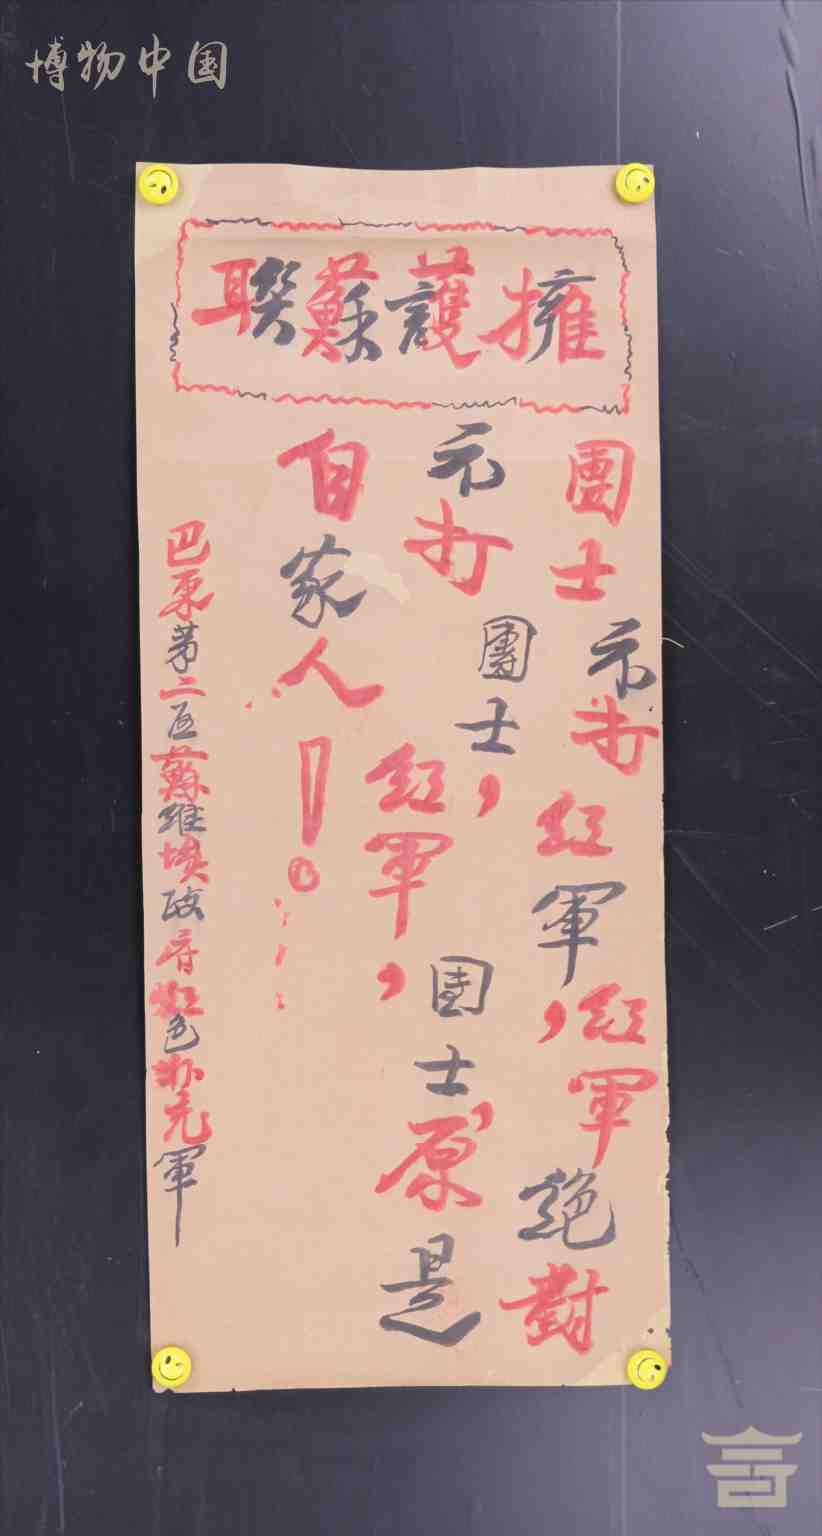 博物中国
擁護蘇聯
團士不打紅軍，紅軍絕對
不打團士，紅軍，團士，原是
自家人！
巴東第二區蘇維埃政府紅色補充軍